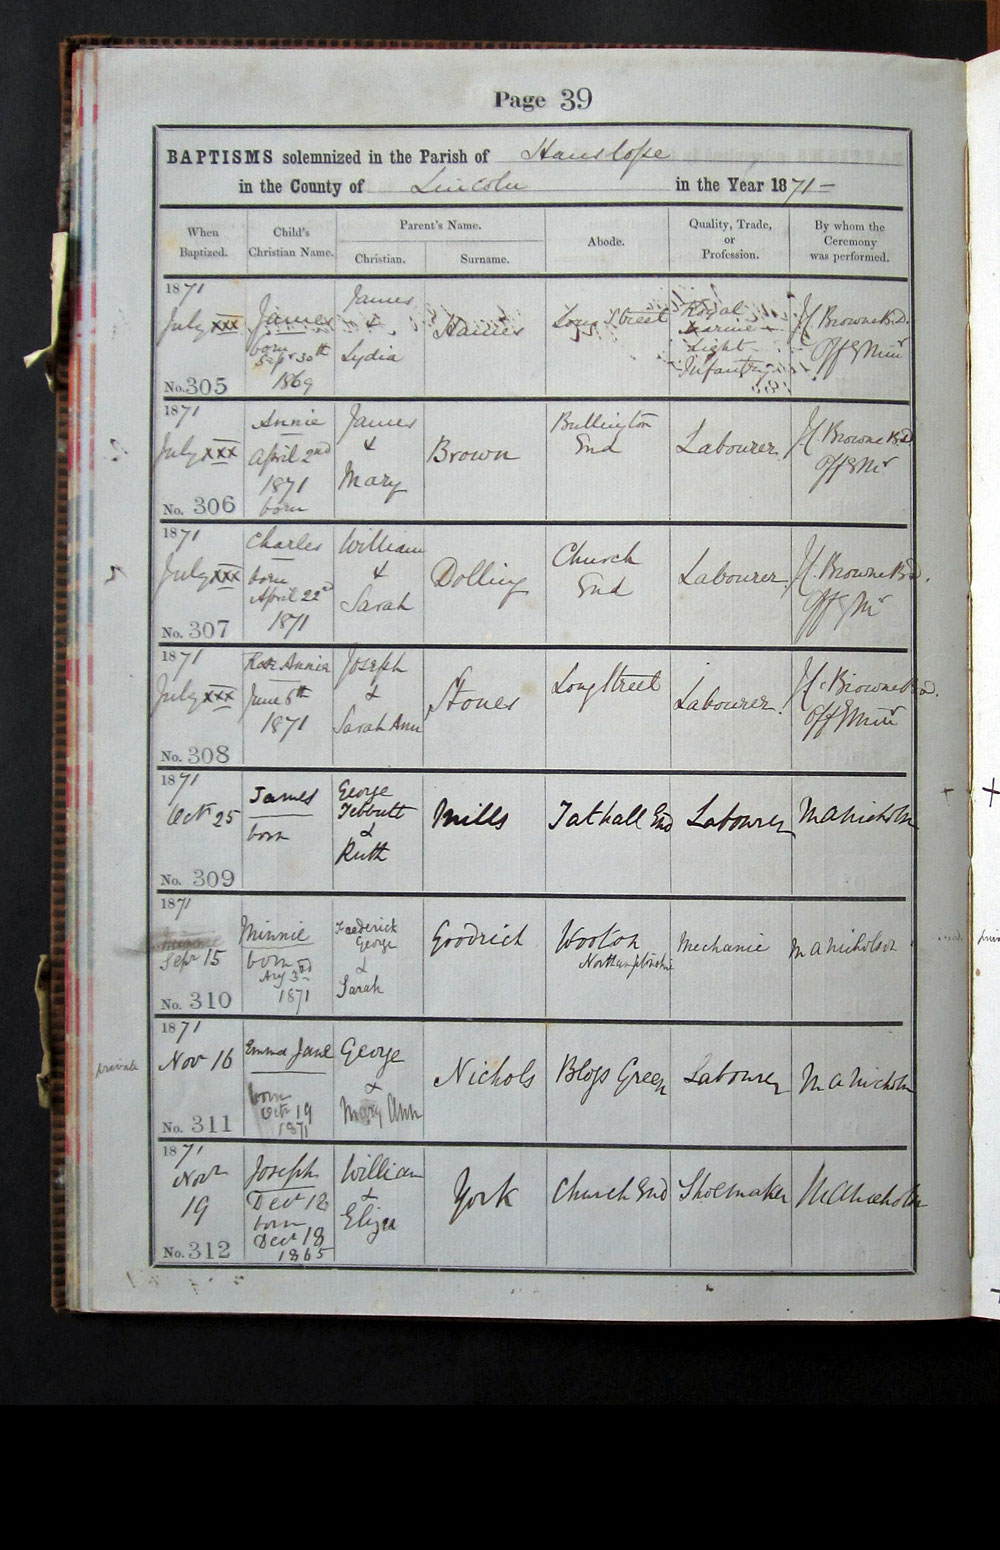 Page 39
BAPTISMS solemnized in the Parish of Hanslope
in the County of Lincoln in the Year 1871
When Baptized. Child's Christian Name. Parent's Name. Christian. Surname. Abode. Quality, Trade, or Profession. By whom the Ceremony was performed.
1871
July xxx
No. 305
James
born
Sepr 30th
1869
James
&
Lydia
Haines
Long Street
Royal
Marine
Light
Infantry
J C Browne B.D.
Offg Minr
1871
July xxx
No. 306
Annie
April 2nd
1871
born
James
&
Mary
Brown
Bullington
End
Labourer
J C Browne B.D
Offg Mr
1871
July xxx
No. 307
Charles
born
April 22d
1871
William
&
Sarah
Dolling
Church
End
Labourer
J C Browne B.D.
Offg Mr
1871
July xxx
No. 308
Rose Annie
June 6th
1871
Joseph
&
Sarah Ann
Stones
Long Street
Labourer
J C Browne B.D.
Offg Minr
1871
Octr 25
No. 309
James
born
George
Tebbutt
&
Ruth
Mills
Tathall End
Labourer
M A Nicholson
1871
Sepr 15
No. 310
Minnie
born
Aug 3rd
1871
Frederick
George
&
Sarah
Goodrich
Wooton
Northamptonshire
Mechanic
M A Nicholson
private
1871
Nov 16
No. 311
Emma Jane
born
Octr 19
1871
George
&
Mary Ann
Nichols
Labourer
M A Nicholson
1871
Novr
19
No. 312
Joseph
Decr 18
born
Decr 18
1865
William
&
Eliza
York
Church End
Shoemaker
M A Nicholson